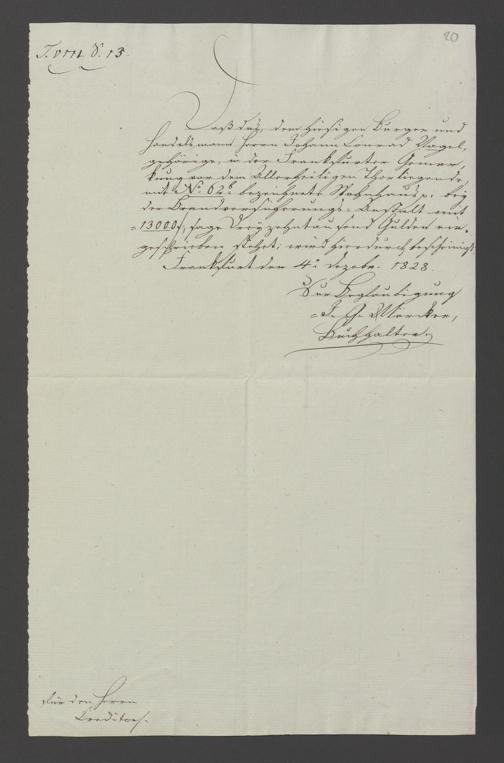 20
T. VIII S. 13.
Daß das, dem hiesigen Burger und
Handelsmann Herrn Johann Conrad Vogel,
gehörige, in der Frankfurter Gemar-
kung vor dem Allerheiligen Thor liegende,
mit No. 62 bezeichnete Wohnhaus p. bey
der Brandversicherungs-Anstalt mit
13000 f, sage Dreyzehntausend Gulden ein-
geschrieben stehet; wird hierdurch bescheinigt
Frankfurt den 4n Dezebr. 1828.
Zur Beglaubigung
Buchhalter.
Für den Herrn
Creditor.